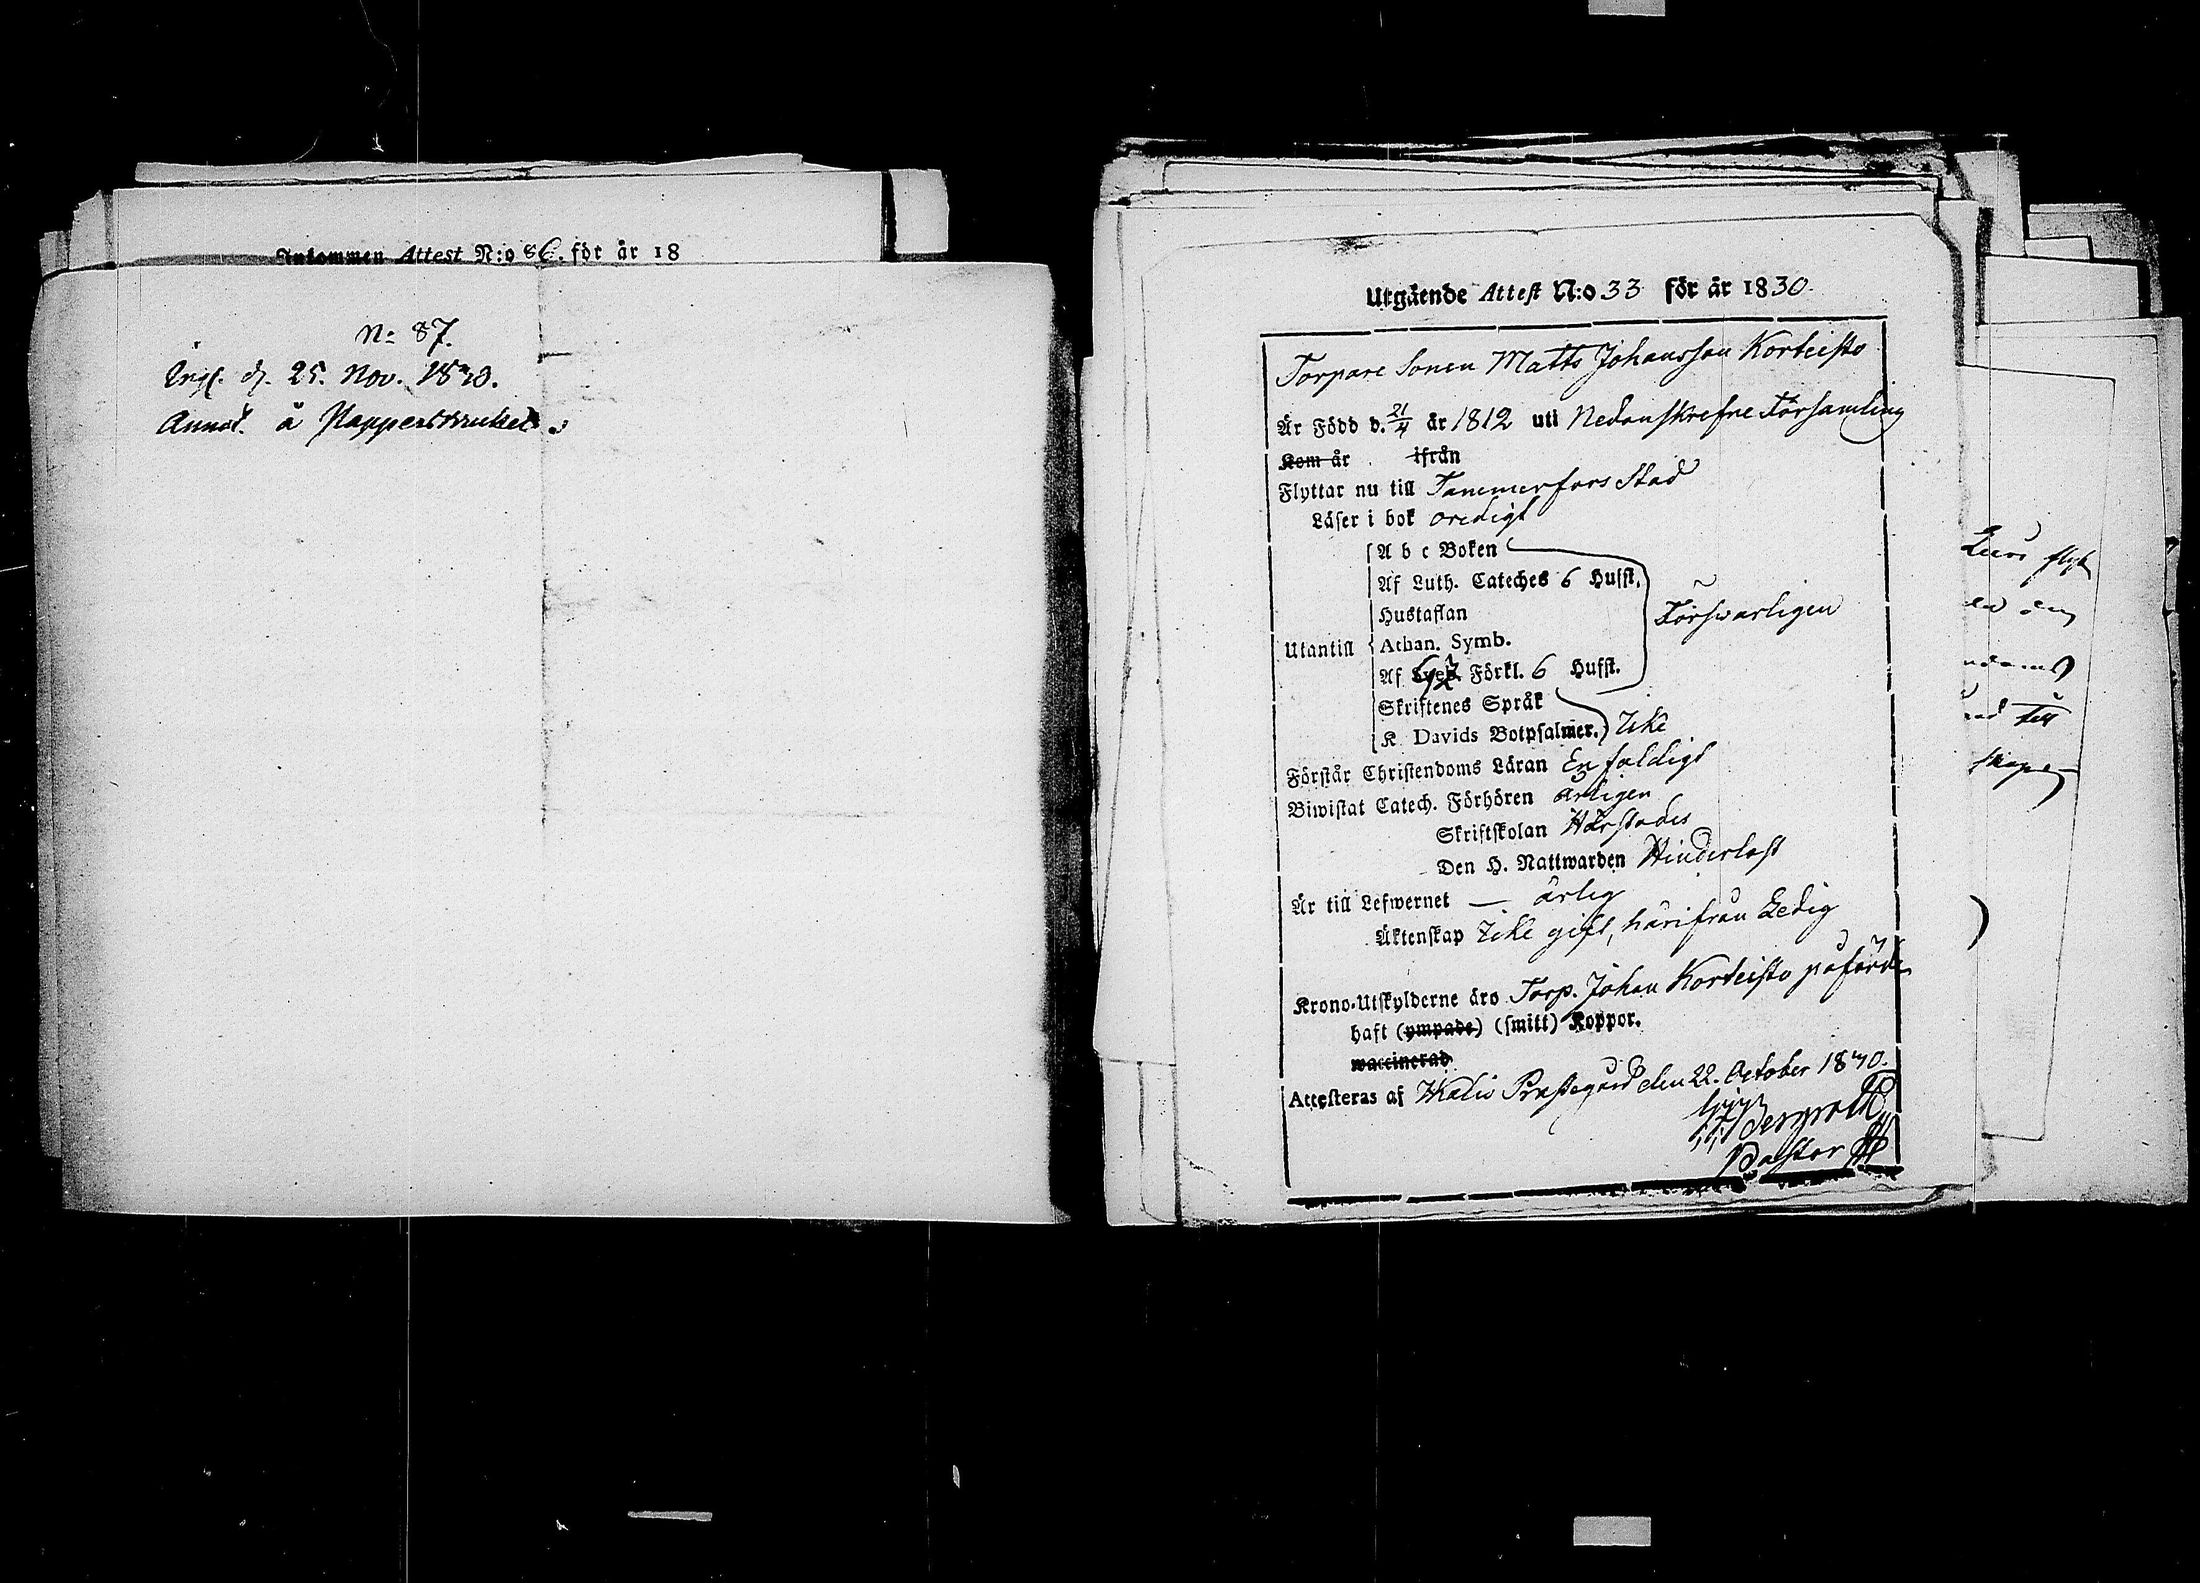 Ankommen Attest N:o 86. för år 18
No 87.
d. 25. Nov. 1830.
Annot. å Pappersbruket.
Utgående Attest N:o 33 för år 1830.
Torpare Sonen Matts Johansson Korteisto
Är Född d. 21/4 år 1812 uti Nedanskrefne Församling
Kom år ifrån
Flyttar nu till Tammerfors Stad
Läser i bok oredigt
A b c Boken
Af Luth. Cateches 6 Hufst.
Hustaflan
Försvarligen
Utantill
Athan. Symb.
Af Förkl. 6 Hufst.
Skriftenes Språk
K Davids Botpsalmer. Icke
Förstår Christendoms Läran Enfaldigt
Biwistat Catech. Förhören årligen
Skriftskolan Härstädes
Den H. Nattwarden Hinderlöst
Är till Lefwernet — ärlig
Äktenskap Icke gift, härifrån Ledig
Krono-Utskylderne äro Torp. Johan Korteisto påförde
haft (ympade) (smitt) Koppor.
waccinerad
Attesteras af Prästegård den 22. October 1830.
Bergroth
Pastor
flyt
till